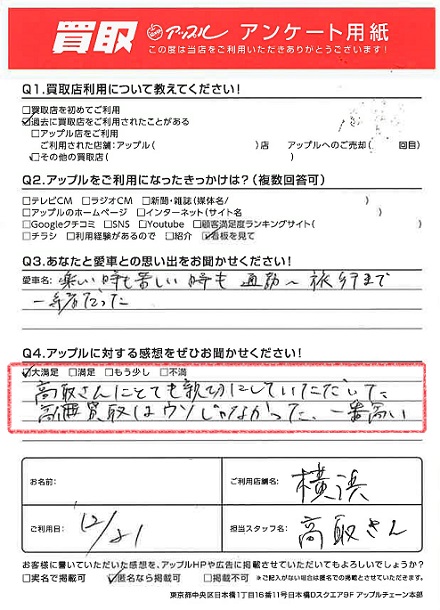 買取 アップル アンケート用紙
この度は当店をご利用いただきありがとうございます!
Q1.買取店利用について教えてください!
□買取店を初めてご利用
☑過去に買取店をご利用されたことがある
□アップル店をご利用
ご利用された店舗:アップル( )店 アップルへのご売却( 回目)
☑その他の買取店( )
Q2.アップルをご利用になったきっかけは?(複数回答可)
□テレビCM □ラジオCM □新聞・雑誌(媒体名/ )
□アップルのホームページ □インターネット(サイト名 )
□Googleクチコミ □SNS □Youtube □顧客満足度ランキングサイト( )
□チラシ □利用経験があるので □紹介 ☑看板を見て
Q3.あなたと愛車との思い出をお聞かせください!
愛車名: 楽い時も苦しい時も 通勤〜旅行まで
一緒だった
Q4.アップルに対する感想をぜひお聞かせください!
☑大満足 □満足 □もう少し □不満
高取さんにとても親切にしていただいた
高価買取はウソじゃなかった、一番高い
お名前:
ご利用店舗名: 横浜
ご利用日: 12/21
担当スタッフ名: 高取さん
お客様に書いていただいた感想を、アップルHPや広告に掲載させていただいてもよろしいでしょうか?
□実名で掲載可 ☑匿名なら掲載可 □掲載不可 ※ご記入がない場合は匿名での掲載とさせていただきます。
東京都中央区日本橋1丁目16番11号日本橋Dスクエア9F アップルチェーン本部